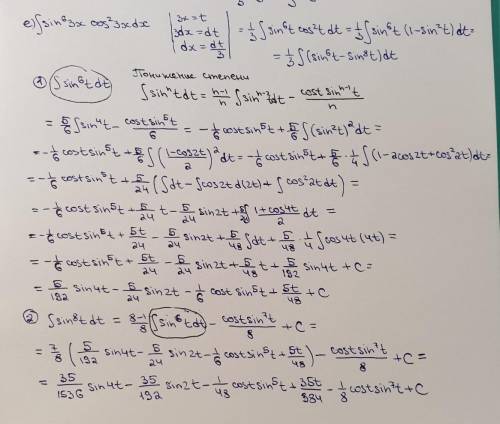 e) ∫sin⁶3x cos²3x dx | 3x=t 3dx=dt dx=dt/3 | = 1/3 ∫sin⁶t cos²t dt = 1/3 ∫sin⁶t (1-sin²t)dt =
= 1/3 ∫(sin⁶t - sin⁸t)dt
① ∫sin⁶t dt Понижение степени
∫sinⁿt dt = n-1/n ∫sinⁿ⁻²t dt - cost sinⁿ⁻¹t/n
= 5/6 ∫sin⁴t - cost sin⁵t/6 = -1/6 cost sin⁵t + 5/6 ∫(sin²t)² dt =
= -1/6 cost sin⁵t + 5/6 ∫(1-cos2t/2)² dt = -1/6 cost sin⁵t + 5/6 · 1/4 ∫(1-2cos2t+cos²2t)dt =
= -1/6 cost sin⁵t + 5/24 (∫dt - ∫cos2t d(2t) + ∫cos²2t dt) =
= -1/6 cost sin⁵t + 5/24 t - 5/24 sin2t + 5/24 ∫ 1+cos4t/2 dt =
= -1/6 cost sin⁵t + 5t/24 - 5/24 sin2t + 5/48 ∫dt + 5/48 · 1/4 ∫cos4t (4t) =
= -1/6 cost sin⁵t + 5t/24 - 5/24 sin2t + 5/48 t + 5/192 sin4t + C =
= 5/192 sin4t - 5/24 sin2t - 1/6 cost sin⁵t + 5t/48 + C
② ∫sin⁸t dt = 8-1/8 ∫sin⁶t dt - cost sin⁷t/8 + C =
= 7/8 (5/192 sin4t - 5/24 sin2t - 1/6 cost sin⁵t + 5t/48) - cost sin⁷t/8 + C =
= 35/1536 sin4t - 35/192 sin2t - 1/48 cost sin⁵t + 35t/384 - 1/8 cost sin⁷t + C